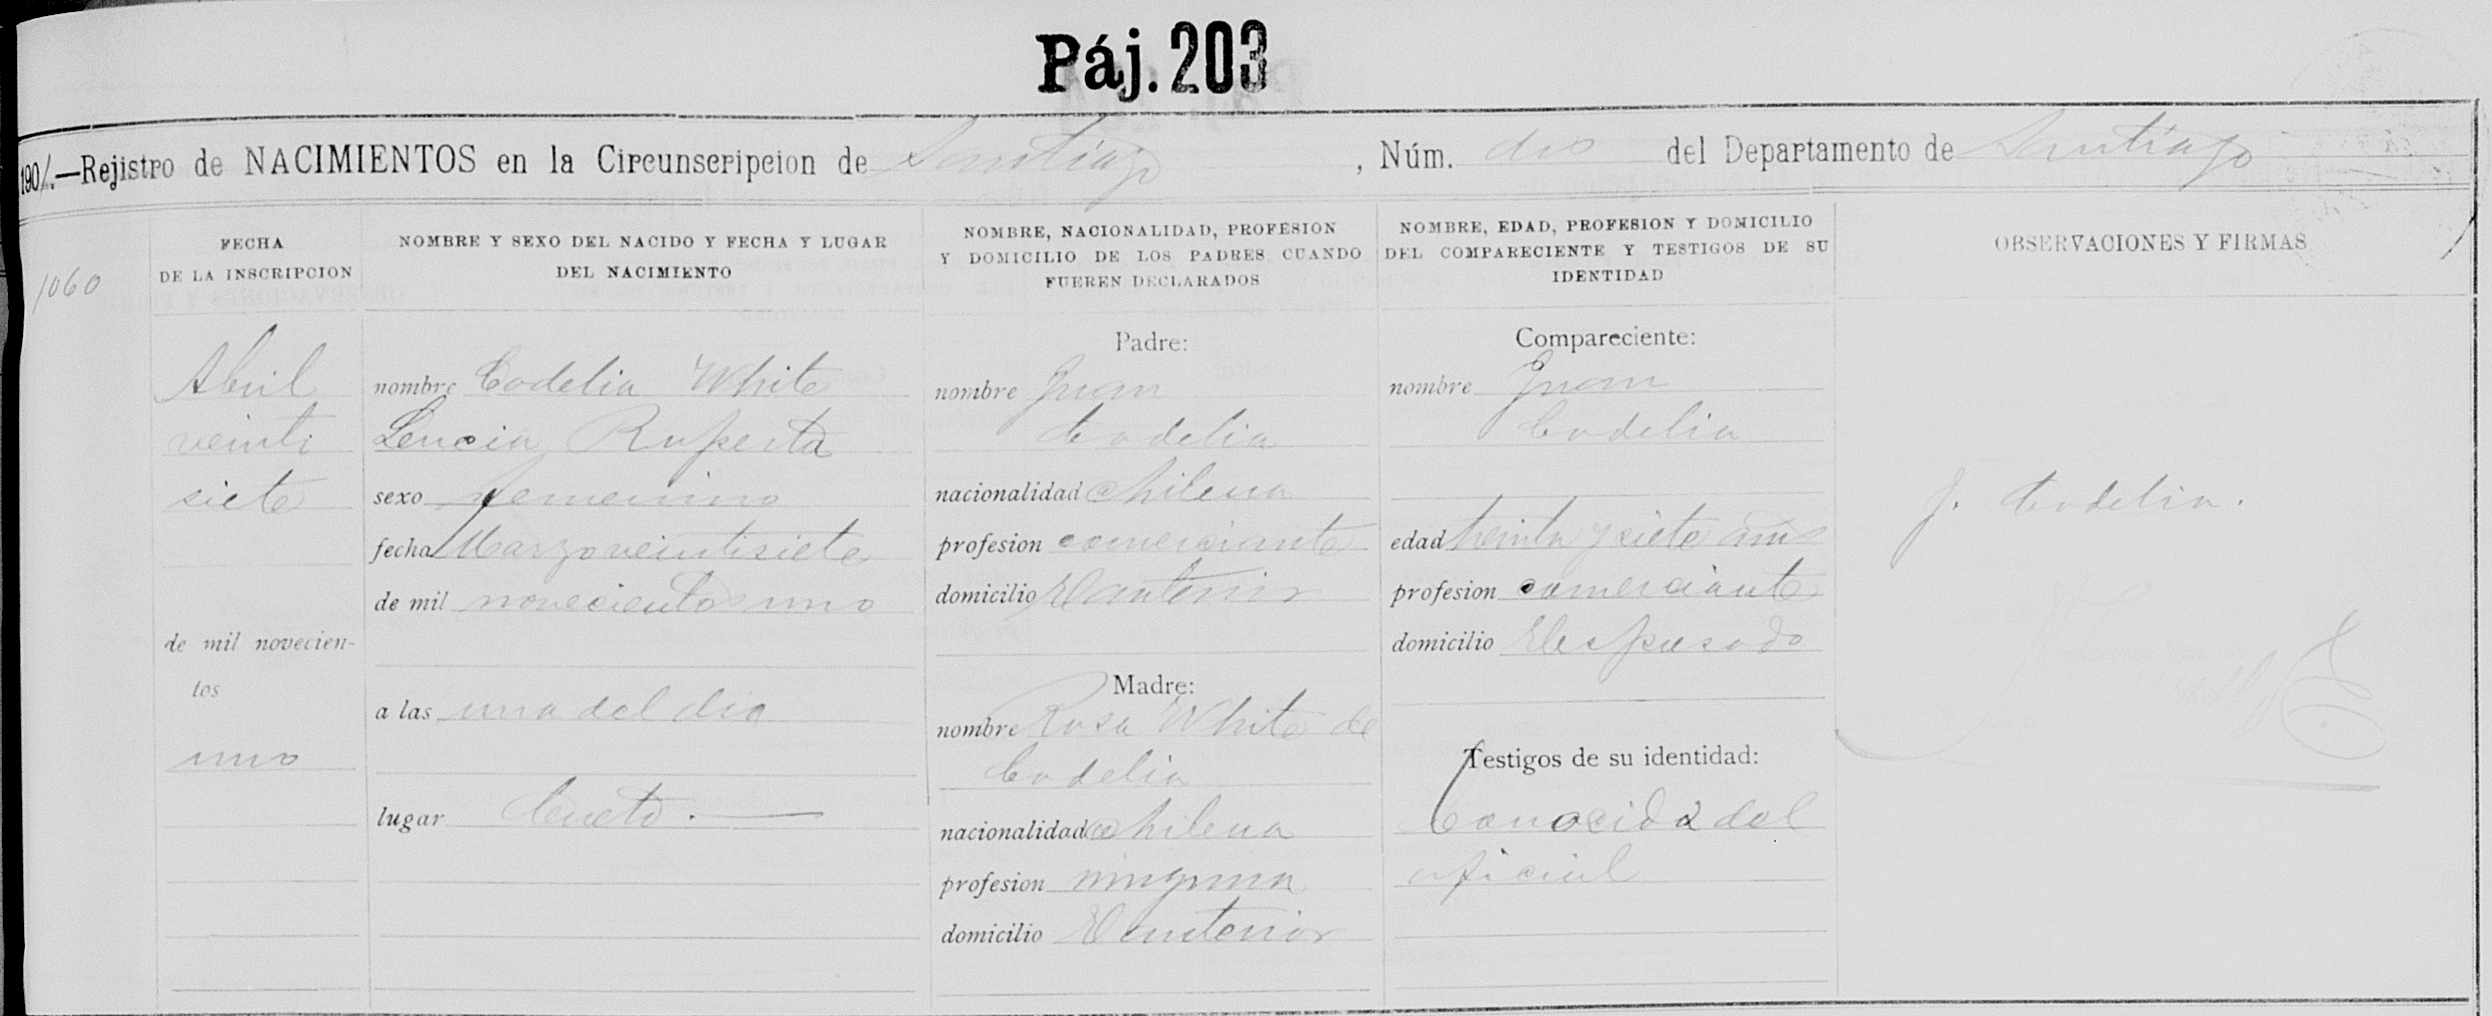 Páj. 203
1901.—Rejistro de NACIMIENTOS en la Circunscripcion de Santiago, Núm. dos del Departamento de Santiago
1060
FECHA
DE LA INSCRIPCION
Abril
veinti
siete
de mil novecien-
tos
uno
NOMBRE Y SEXO DEL NACIDO Y FECHA Y LUGAR
DEL NACIMIENTO
nombre Codelia White
Lucia Ruperta
sexo femenino
fecha Marzo veintisiete
de mil novecientos uno
a las una del dia
lugar Cueto.
NOMBRE, NACIONALIDAD, PROFESION
Y DOMICILIO DE LOS PADRES CUANDO
FUEREN DECLARADOS
Padre:
nombre Juan
Codelia
nacionalidad chilena
profesion comerciante
domicilio El anterior
Madre:
nombre Rosa White de
Codelia
nacionalidad chilena
profesion ninguna
domicilio El anterior
NOMBRE, EDAD, PROFESION Y DOMICILIO
DEL COMPARECIENTE Y TESTIGOS DE SU
IDENTIDAD
Compareciente:
nombre Juan
Codelia
edad treinta y siete años
profesion comerciante
domicilio El espresado
Testigos de su identidad:
Conocida del
oficial
OBSERVACIONES Y FIRMAS
J. Codelia.